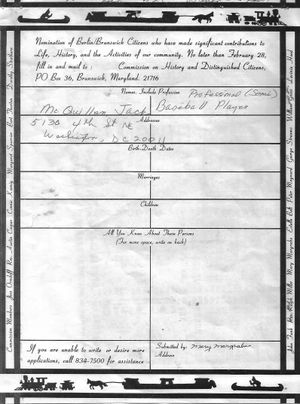 Nomination of Berlin/Brunswick Citizens who have made significant contributions to
Life, History, and the Activities of our community. No later than February 28,
fill in and mail to : Commission on History and Distinguished Citizens,
PO Box 36, Brunswick, Maryland. 21716
Names, Include Profession Professional (Semi)
McQuillan, Jack Baseball Player
Addresses
5130 4th St NE
Washington, DC 20011
Birth-Death Dates
Marriages
Children
All You Know About These Persons
(For more space, write on back)
If you are unable to write or desire more
applications, call 834-7500 for assistance
Submitted by: Mary Margrabe
Address